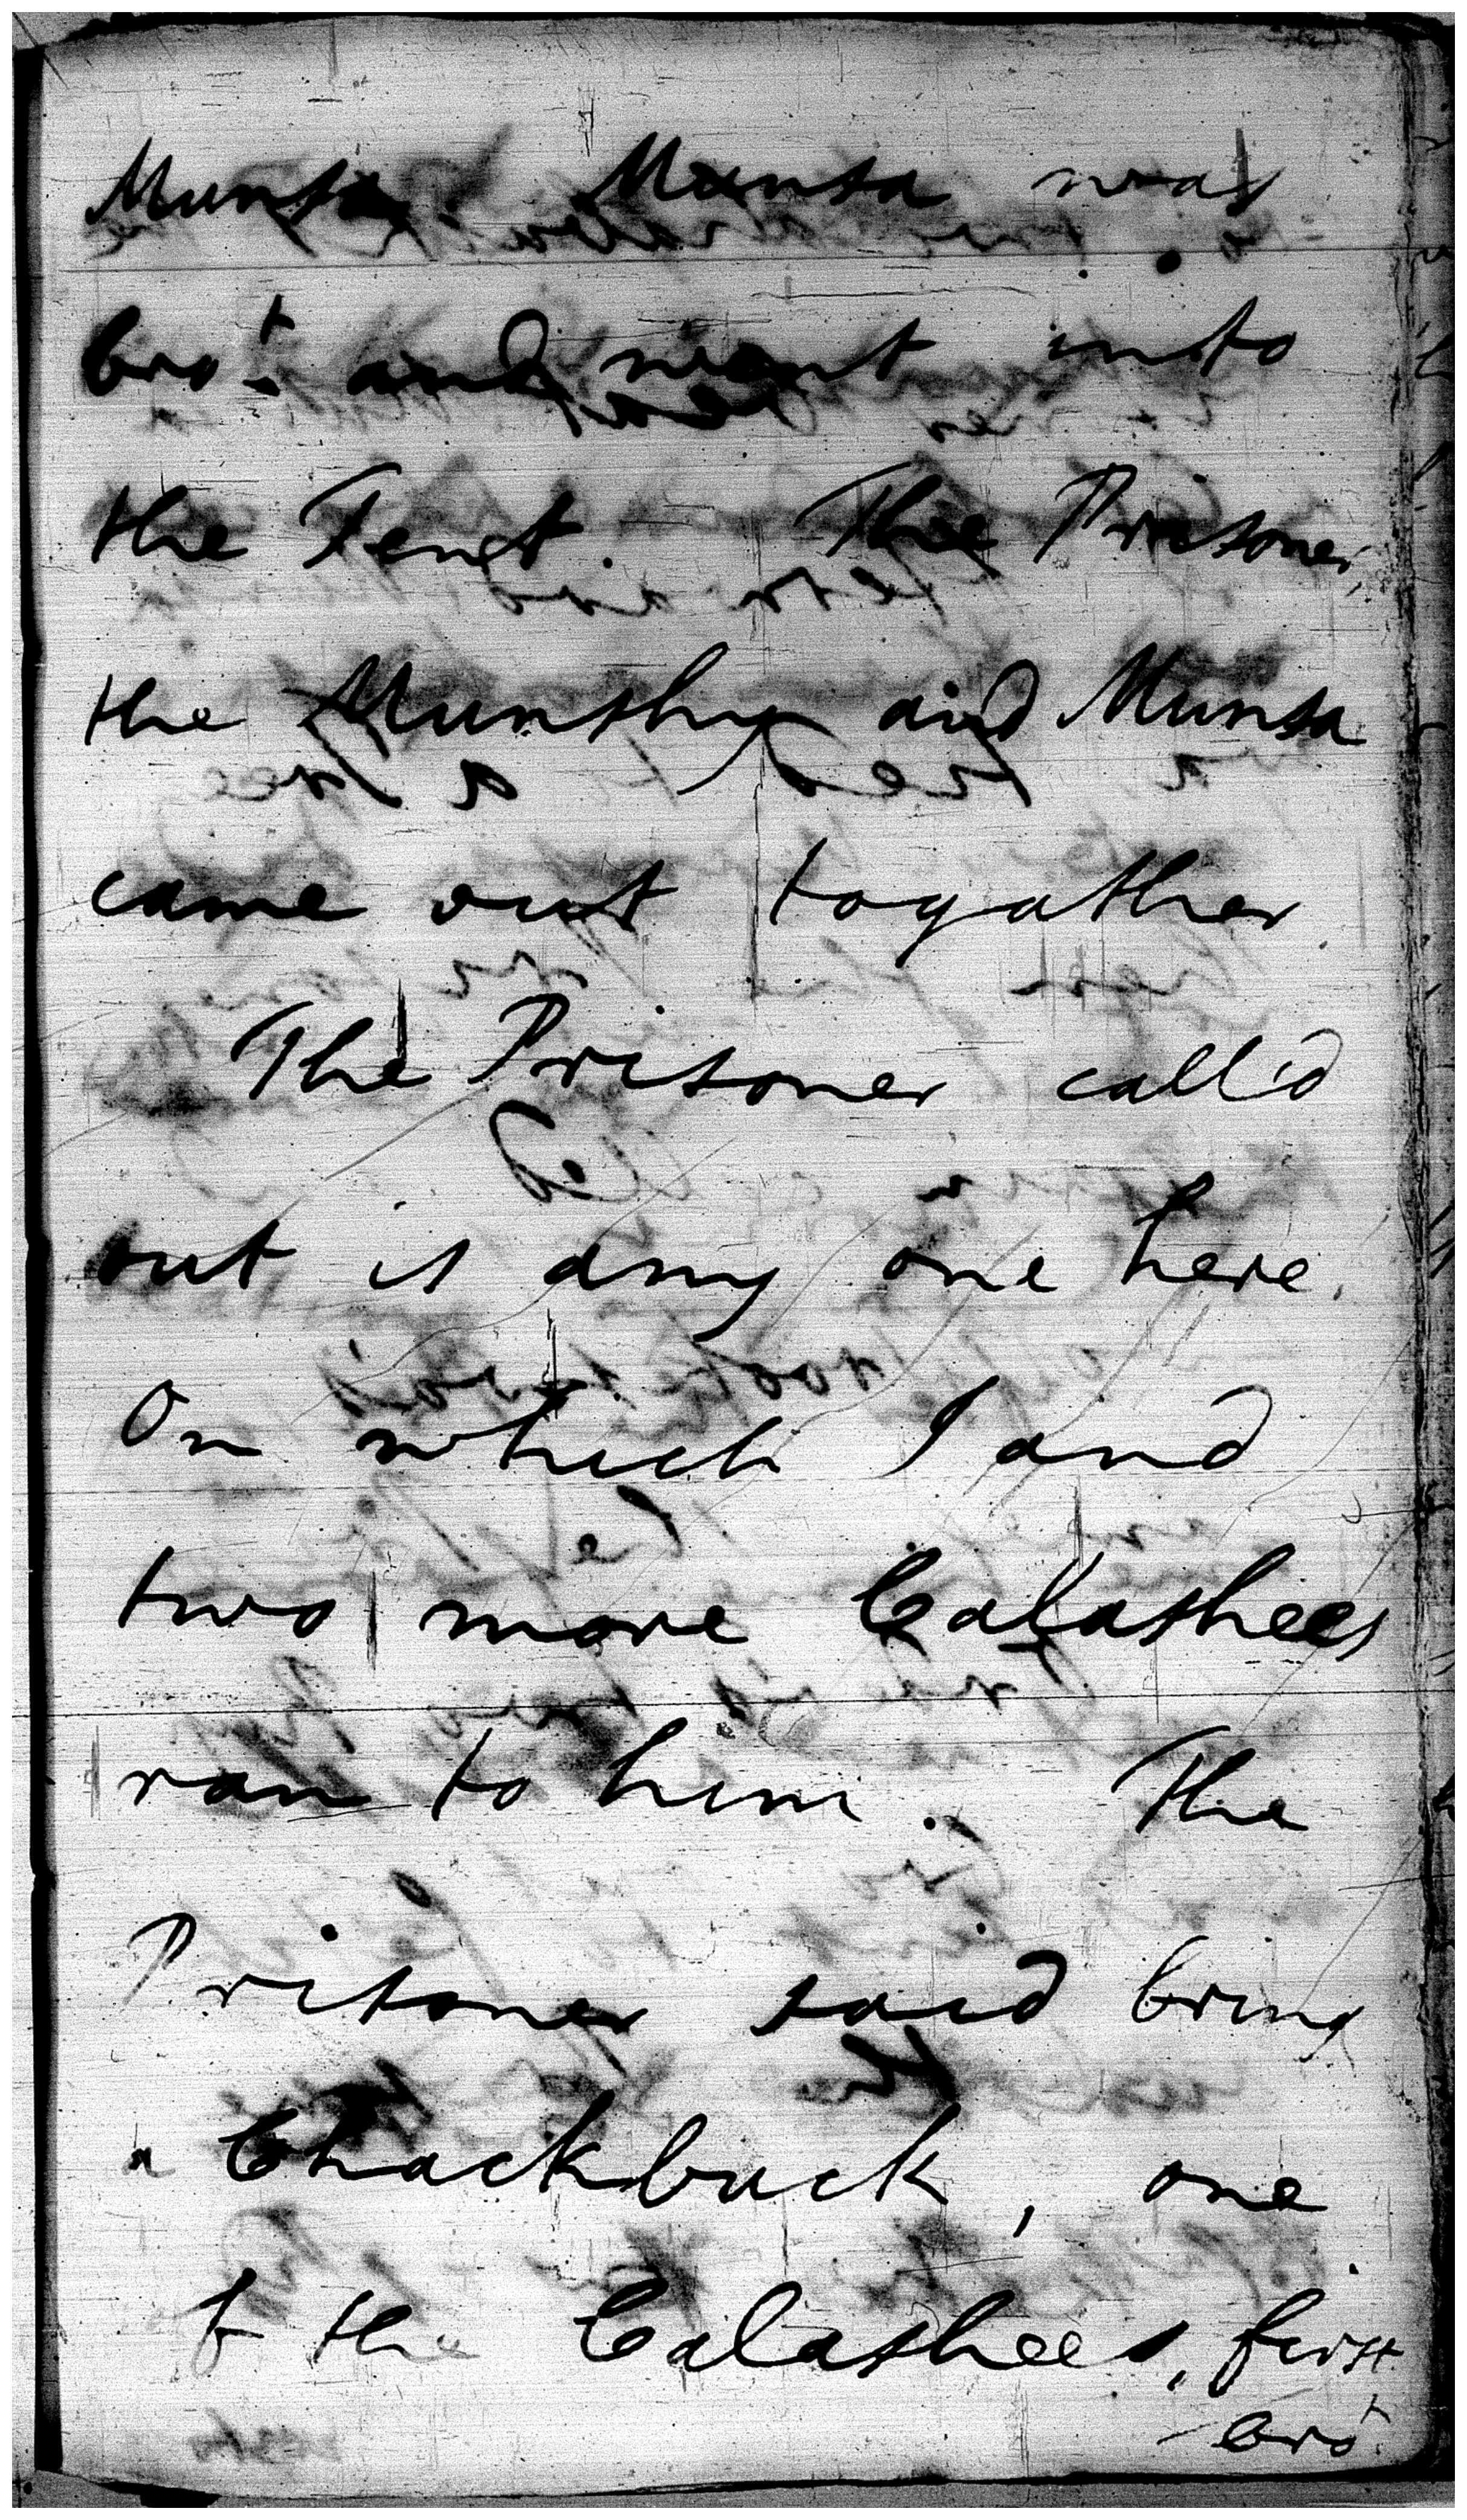 Munsa. Munsa was
bro.t and went into
the Tent. The Prisoner,
the Munshy and Munsa
came out togather.
The Prisoner call'd
out is any one here.
On which I and
two more Calashees
ran to him. The
Prisoner said bring
a Chackbuck, one
of the Calashees, first
bro.t